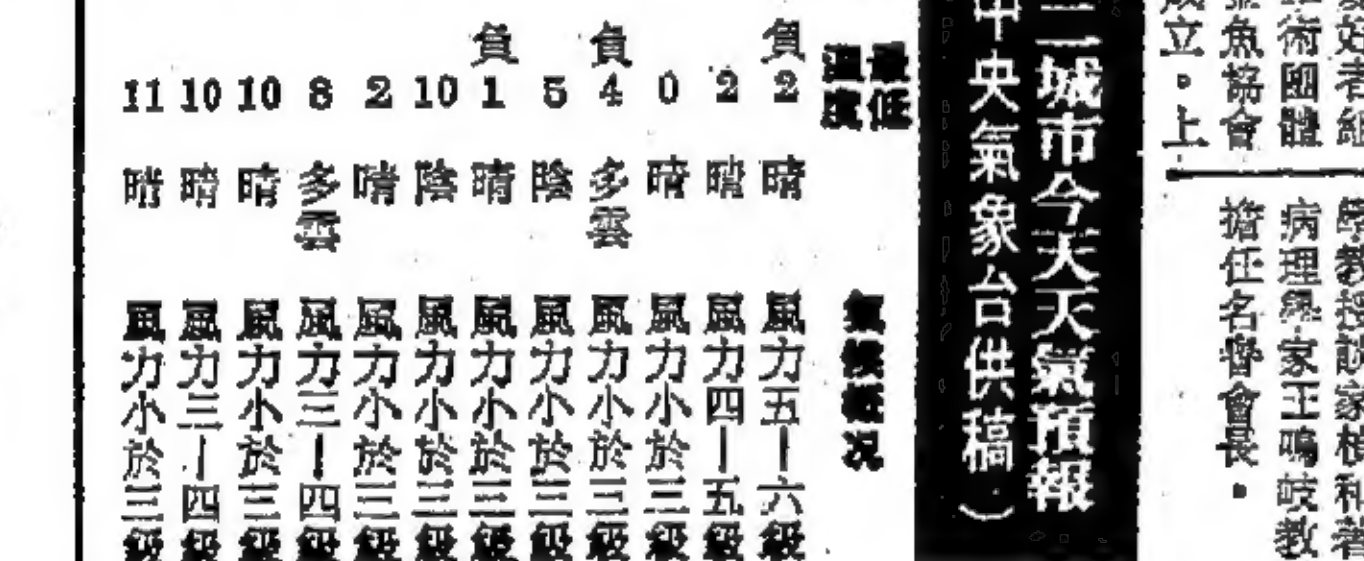 愛好者組
術國體
金魚協會
成立。上
學教授談家楨和著
病理學家王鳴岐教
擔任名譽會長。
二城市今天天氣預報
中央氣象台供稿）
最低溫度 氣候概况
負2 晴 風力五—六級
2 晴 風力四—五級
0 晴 風力小於三級
負4 多雲 風力小於三級
5 陰 風力小於三級
負1 晴 風力小於三級
10 陰 風力小於三級
2 晴 風力小於三級
8 多雲 風力三—四級
10 晴 風力小於三級
10 晴 風力三—四級
11 晴 風力小於三級